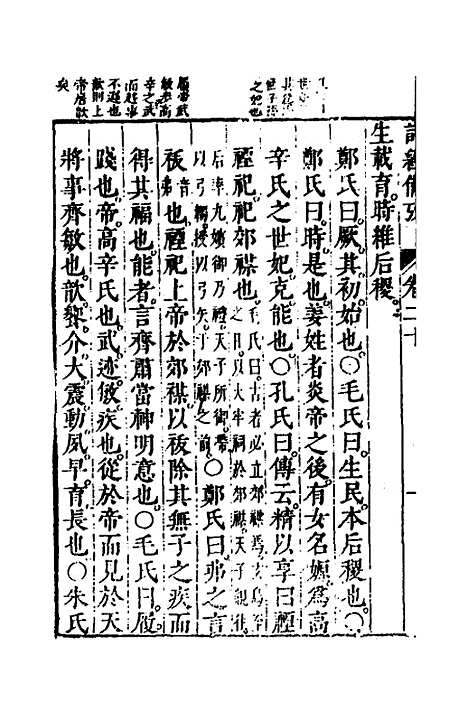 詩經備考
卷二十
生載育時維后稷
鄭氏曰厥其初始也○毛氏曰生民本后稷也○
鄭氏曰時是也姜姓者炎帝之後有女名嫄為高
辛氏之世妃克能也○孔氏曰傳云精以享曰禋
禋祀祀郊禖也毛氏曰古者必立郊禖焉玄鳥至
之日以大牢祠於郊禖天子親往
后率九嬪御乃禮天子所御帶
以弓韣授以弓矢于郊禖之前○鄭氏曰弗之言
祓音弗也禋祀上帝於郊禖以祓除其無子之疾而
得其福也能者言齊肅當神明意也○毛氏曰履
踐也帝高辛氏也武迹敏疾也從於帝而見於天
將事齊敏也歆饗介大震動夙早育長也○朱氏
之妃也
履帝武
敏者高
辛之武
而趨事
不遲也
歆則上
帝居歆
矣